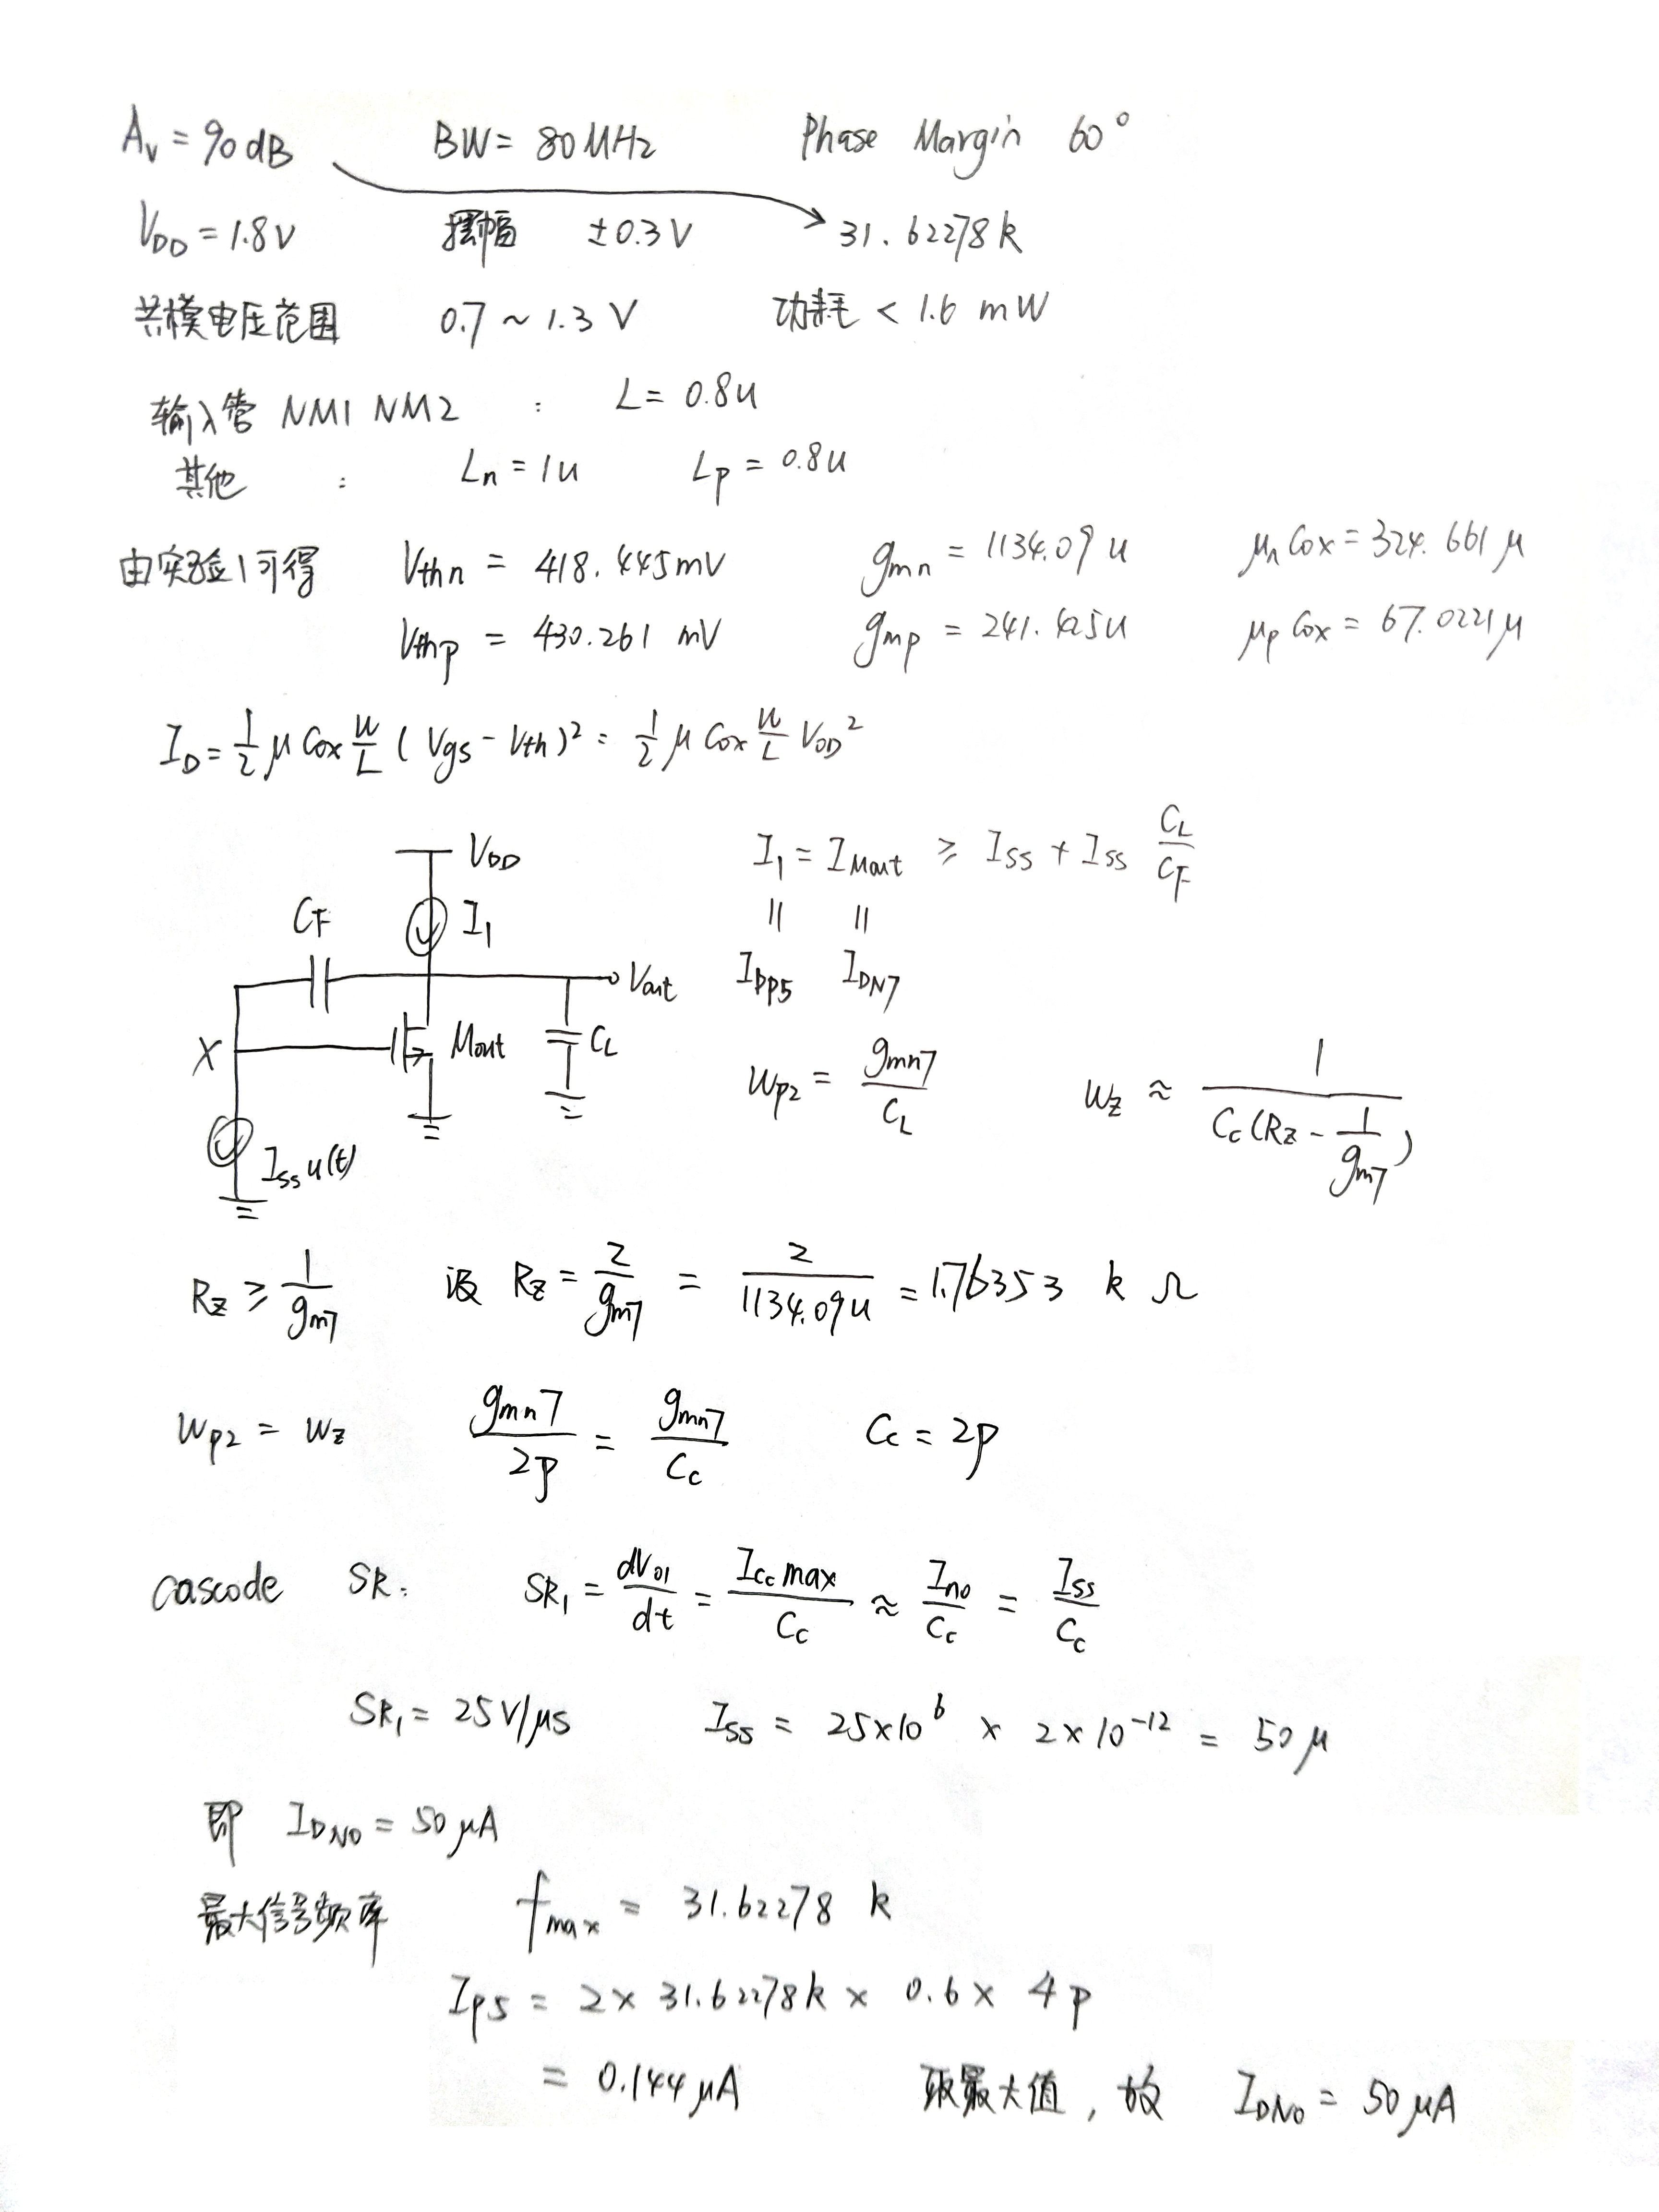 Av = 90 dB    BW = 80 MHz    Phase Margin 60°
VDD = 1.8V    摆幅 ±0.3V    31.62278 k
共模电压范围    0.7 ~ 1.3 V    功耗 < 1.6 mW
输入管 NM1 NM2 : L = 0.8u
其他 : Ln = 1u    Lp = 0.8u
由实验1可得    Vthn = 418.445mV    gmn = 1134.09 u    μn Cox = 324.661 μ
Vthp = 430.261 mV    gmp = 241.425u    μp Cox = 67.0221μ
ID = 1/2 μ Cox W/L (Vgs - Vth)² = 1/2 μ Cox W/L VOD²
VDD
I1 = IMout ≥ ISS + ISS CL/CF
CF    I1
=    =
Vout    IDP5    IDN7
X    Mout    CL
Wp2 = gmn7/CL    Wz ≈ 1/(Cc(Rz - 1/gm7))
Iss u(t)
Rz ≥ 1/gm7    设 Rz = 2/gm7 = 2/1134.09u = 1.76353 k Ω
Wp2 = Wz    gmn7/2p = gmn7/Cc    Cc = 2p
Cascode    SR:    SR1 = dVo1/dt = ICc max/Cc ≈ In0/Cc = Iss/Cc
SR1 = 25V/μs    Iss = 25×10⁶ × 2×10⁻¹² = 50 μ
即 IDN0 = 50 μA
最大信号频率    fmax = 31.62278 k
Ip5 = 2× 31.62278k × 0.6 × 4p
= 0.144 μA    取最大值, 故 IDN0 = 50 μA